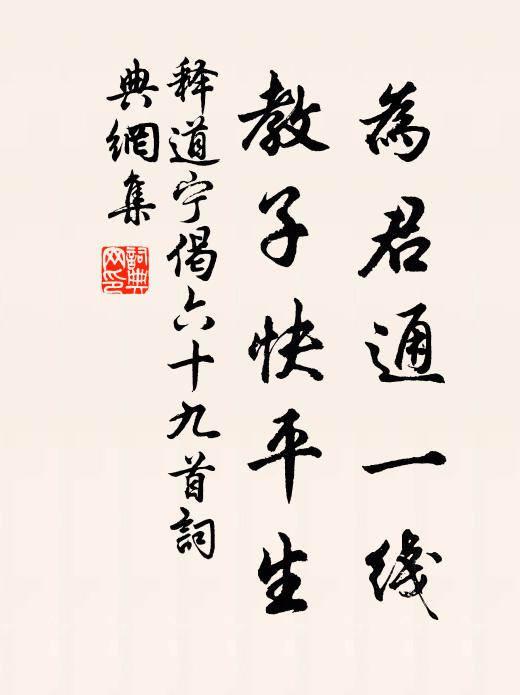 為君通一线
教子快平生
释道宁偈六十九首詞
典網集
詞典
网印